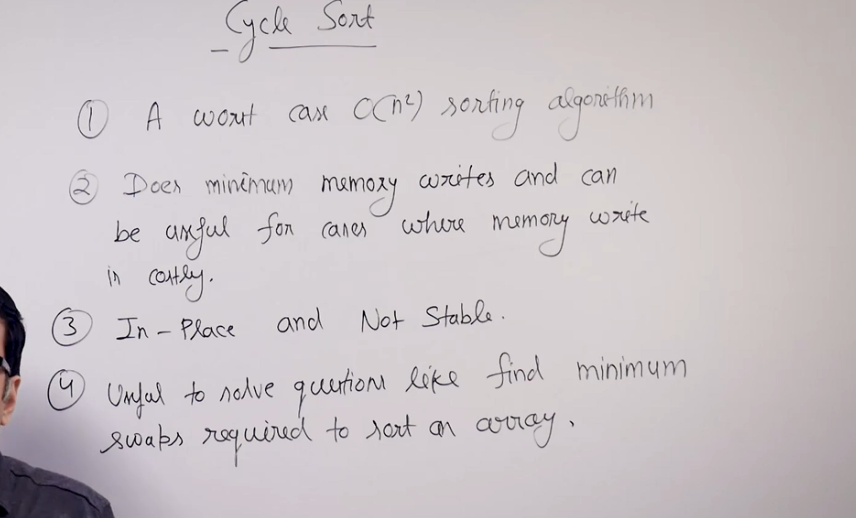 Cycle Sort
① A worst case O(n²) sorting algorithm
② Does minimum memory writes and can
be useful for cases where memory write
is costly.
③ In-Place and Not Stable.
④ Useful to solve questions like find minimum
swaps required to sort an array.